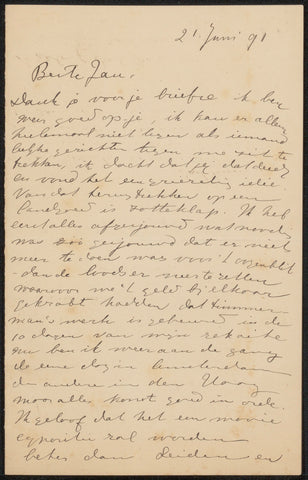 21 Juni 91
Beste Jan,
Dank je voor je briefje ik ben
weer goed op je, ik kan er alleen
heelemaal niet tegen als iemand
leelijke gezichten tegen me zit te
trekken, ik dacht dat jij dat deed
en vond het een griezelig idee
Van dat terugtrekken op een
Landgoed is zotteklap. Ik heb
eerst alles afgejouwd wat noodig
was gejouwd dat er niet
meer te doen was voor 't oogenblik
dan de boel er neer te zetten
waarvoor we 't geld bij elkaar
gekrabt hadden dat timmer-
man's werk is gebeurd in de
10 dagen van mijn
nu ben ik weer aan de gang
de eene dag in Amsterdam
de andere in den Haag
maar alles komt goed in orde.
Ik geloof dat het een mooie
expositie zal worden
beter dan Leiden en